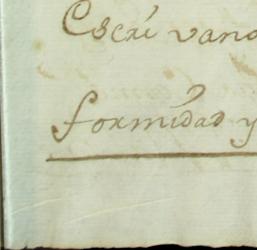 Escrivano
formidad y